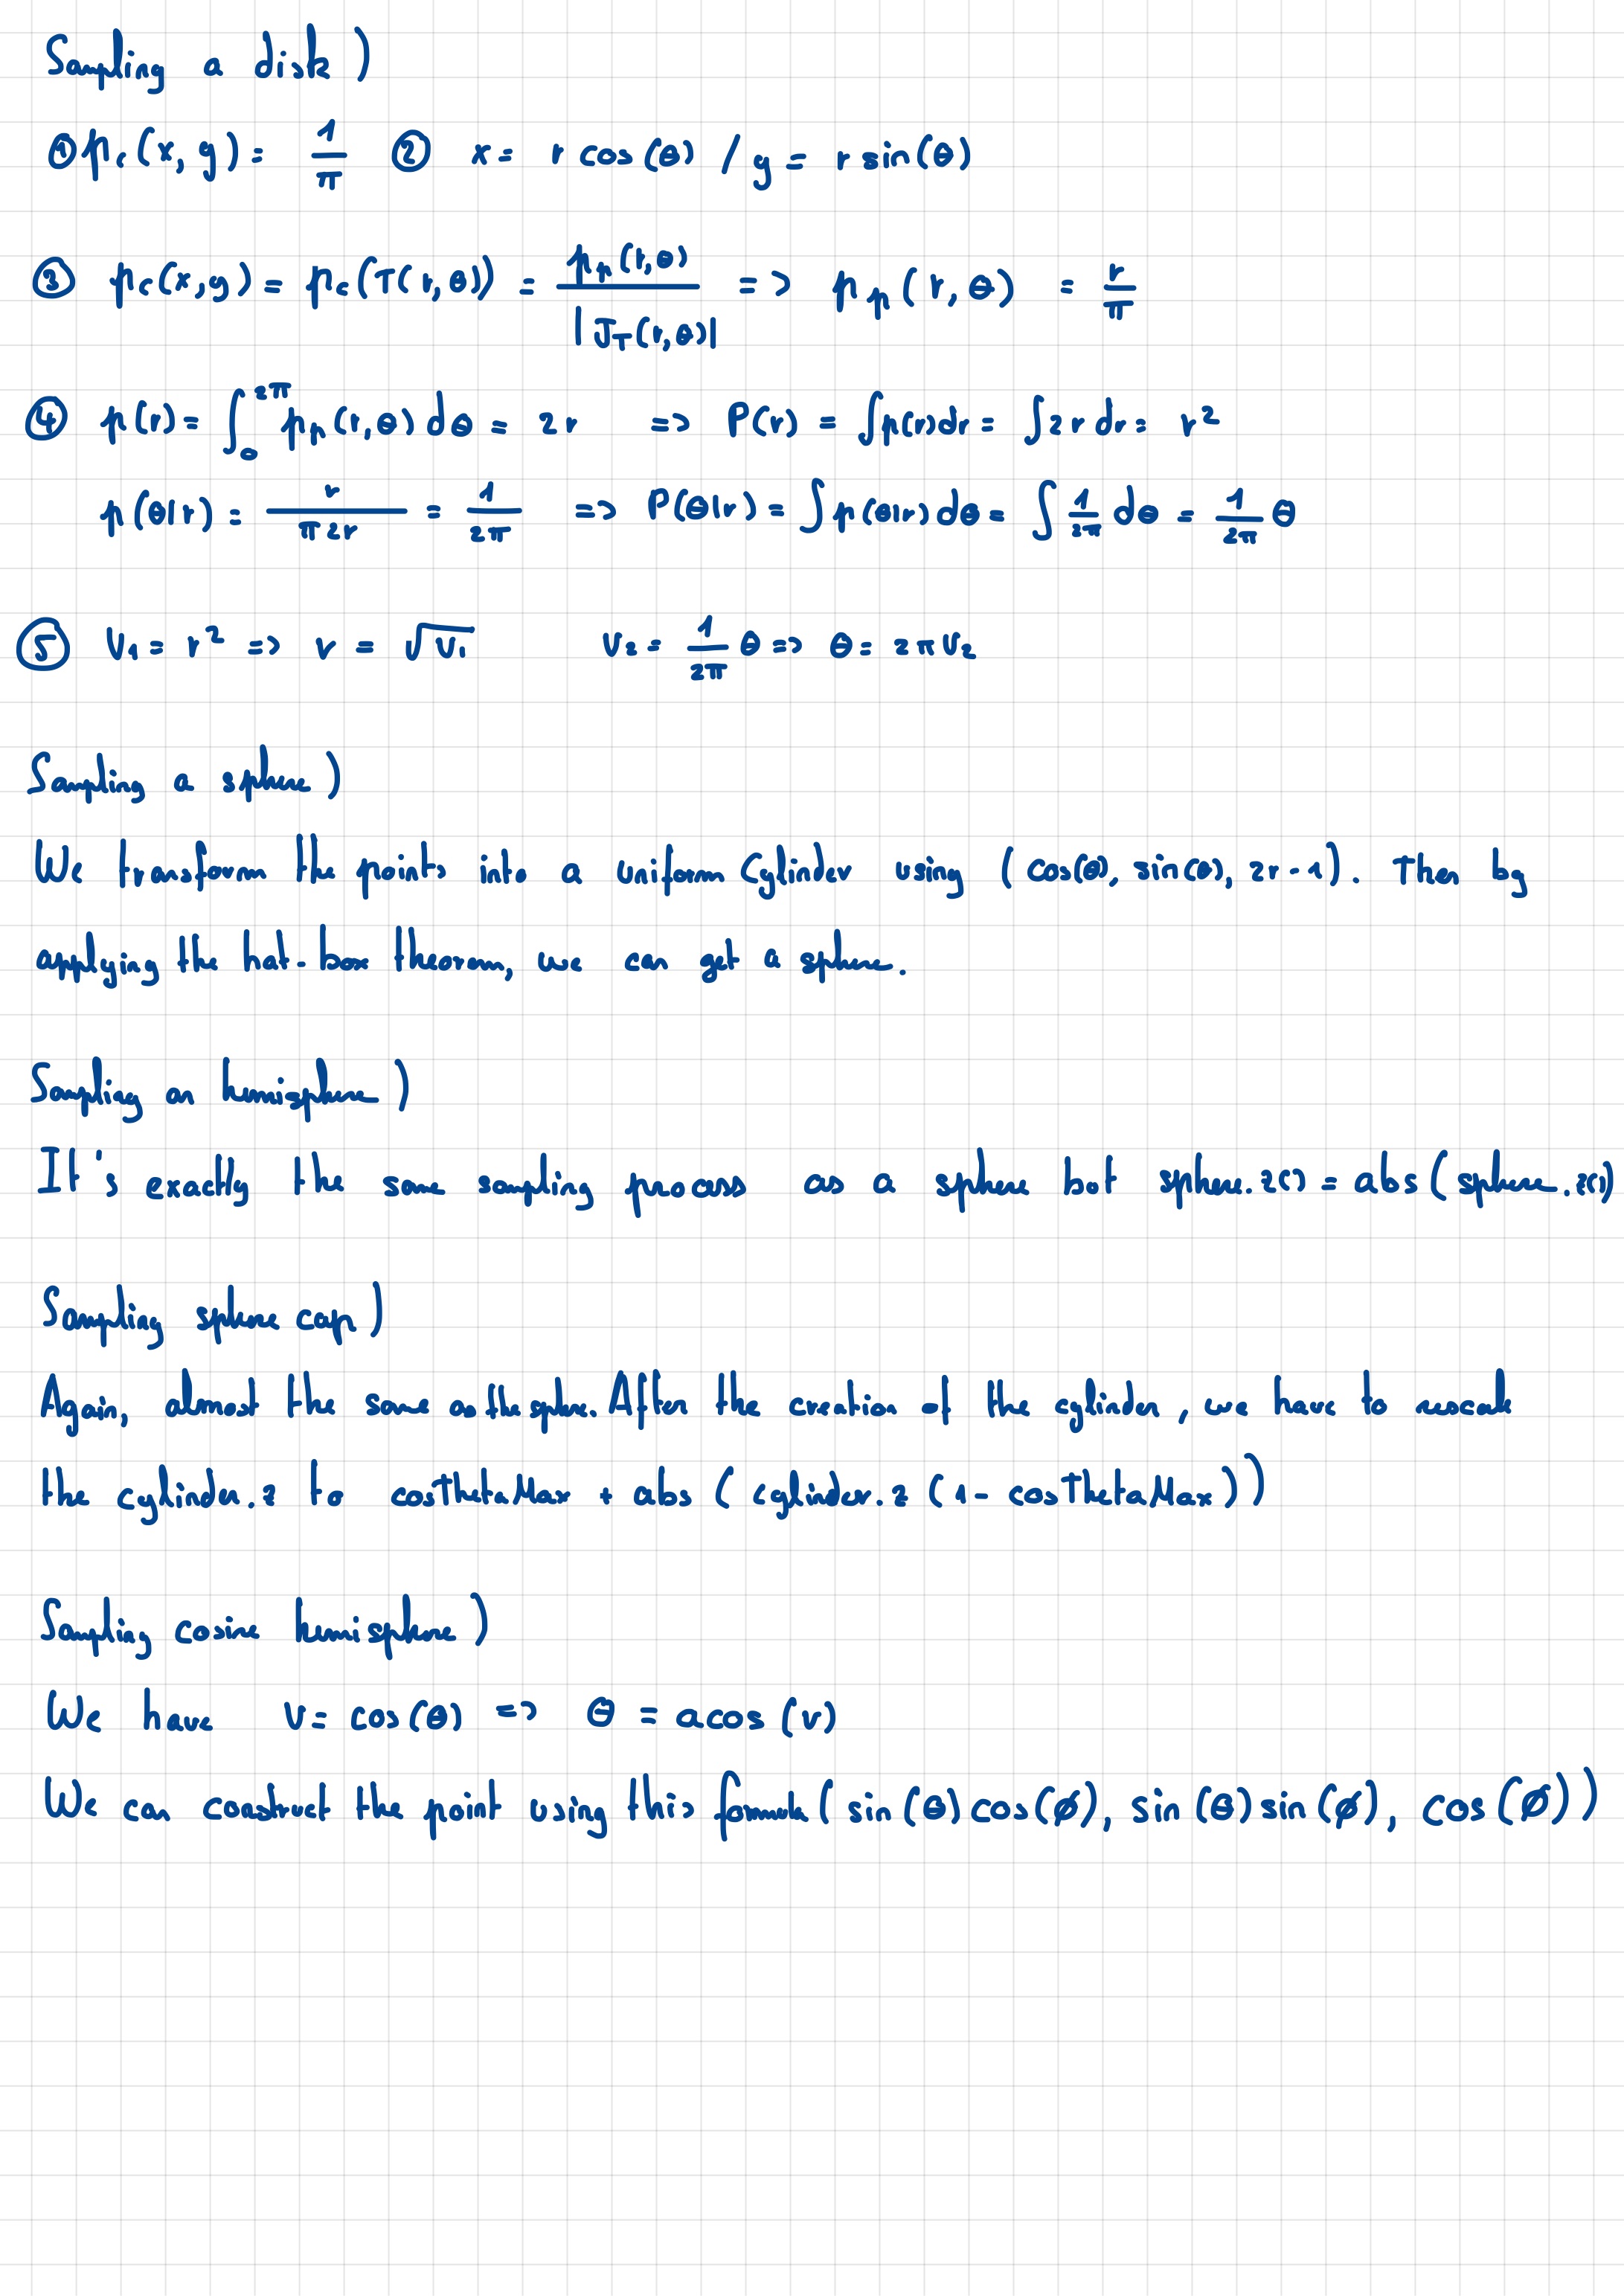 Sampling a disk)
① p_c(x,y) = 1/π ② x = r cos(θ) / y = r sin(θ)
③ p_c(x,y) = p_c(T(r,θ)) = p_p(r,θ) / |J_T(r,θ)| => p_p(r,θ) = r/π
④ p(r) = ∫_0^{2π} p_p(r,θ) dθ = 2r => P(r) = ∫p(r)dr = ∫2r dr = r²
p(θ|r) = r/(π 2r) = 1/(2π) => P(θ|r) = ∫p(θ|r)dθ = ∫ 1/(2π) dθ = 1/(2π) θ
⑤ U_1 = r² => r = √U_1 U_2 = 1/(2π) θ => θ = 2πU_2
Sampling a sphere)
We transform the points into a uniform Cylinder using (cos(θ), sin(θ), 2r-1). Then by
applying the hat-box theorem, we can get a sphere.
Sampling an hemisphere)
It's exactly the same sampling process as a sphere but sphere.z() = abs(sphere.z())
Sampling sphere cap)
Again, almost the same as the sphere. After the creation of the cylinder, we have to rescale
the cylinder.z to cosThetaMax + abs (cylinder.z (1 - cosThetaMax))
Sampling cosine hemisphere)
We have v = cos(θ) => θ = acos(v)
We can construct the point using this formula (sin(θ)cos(ø), sin(θ)sin(ø), cos(ø))